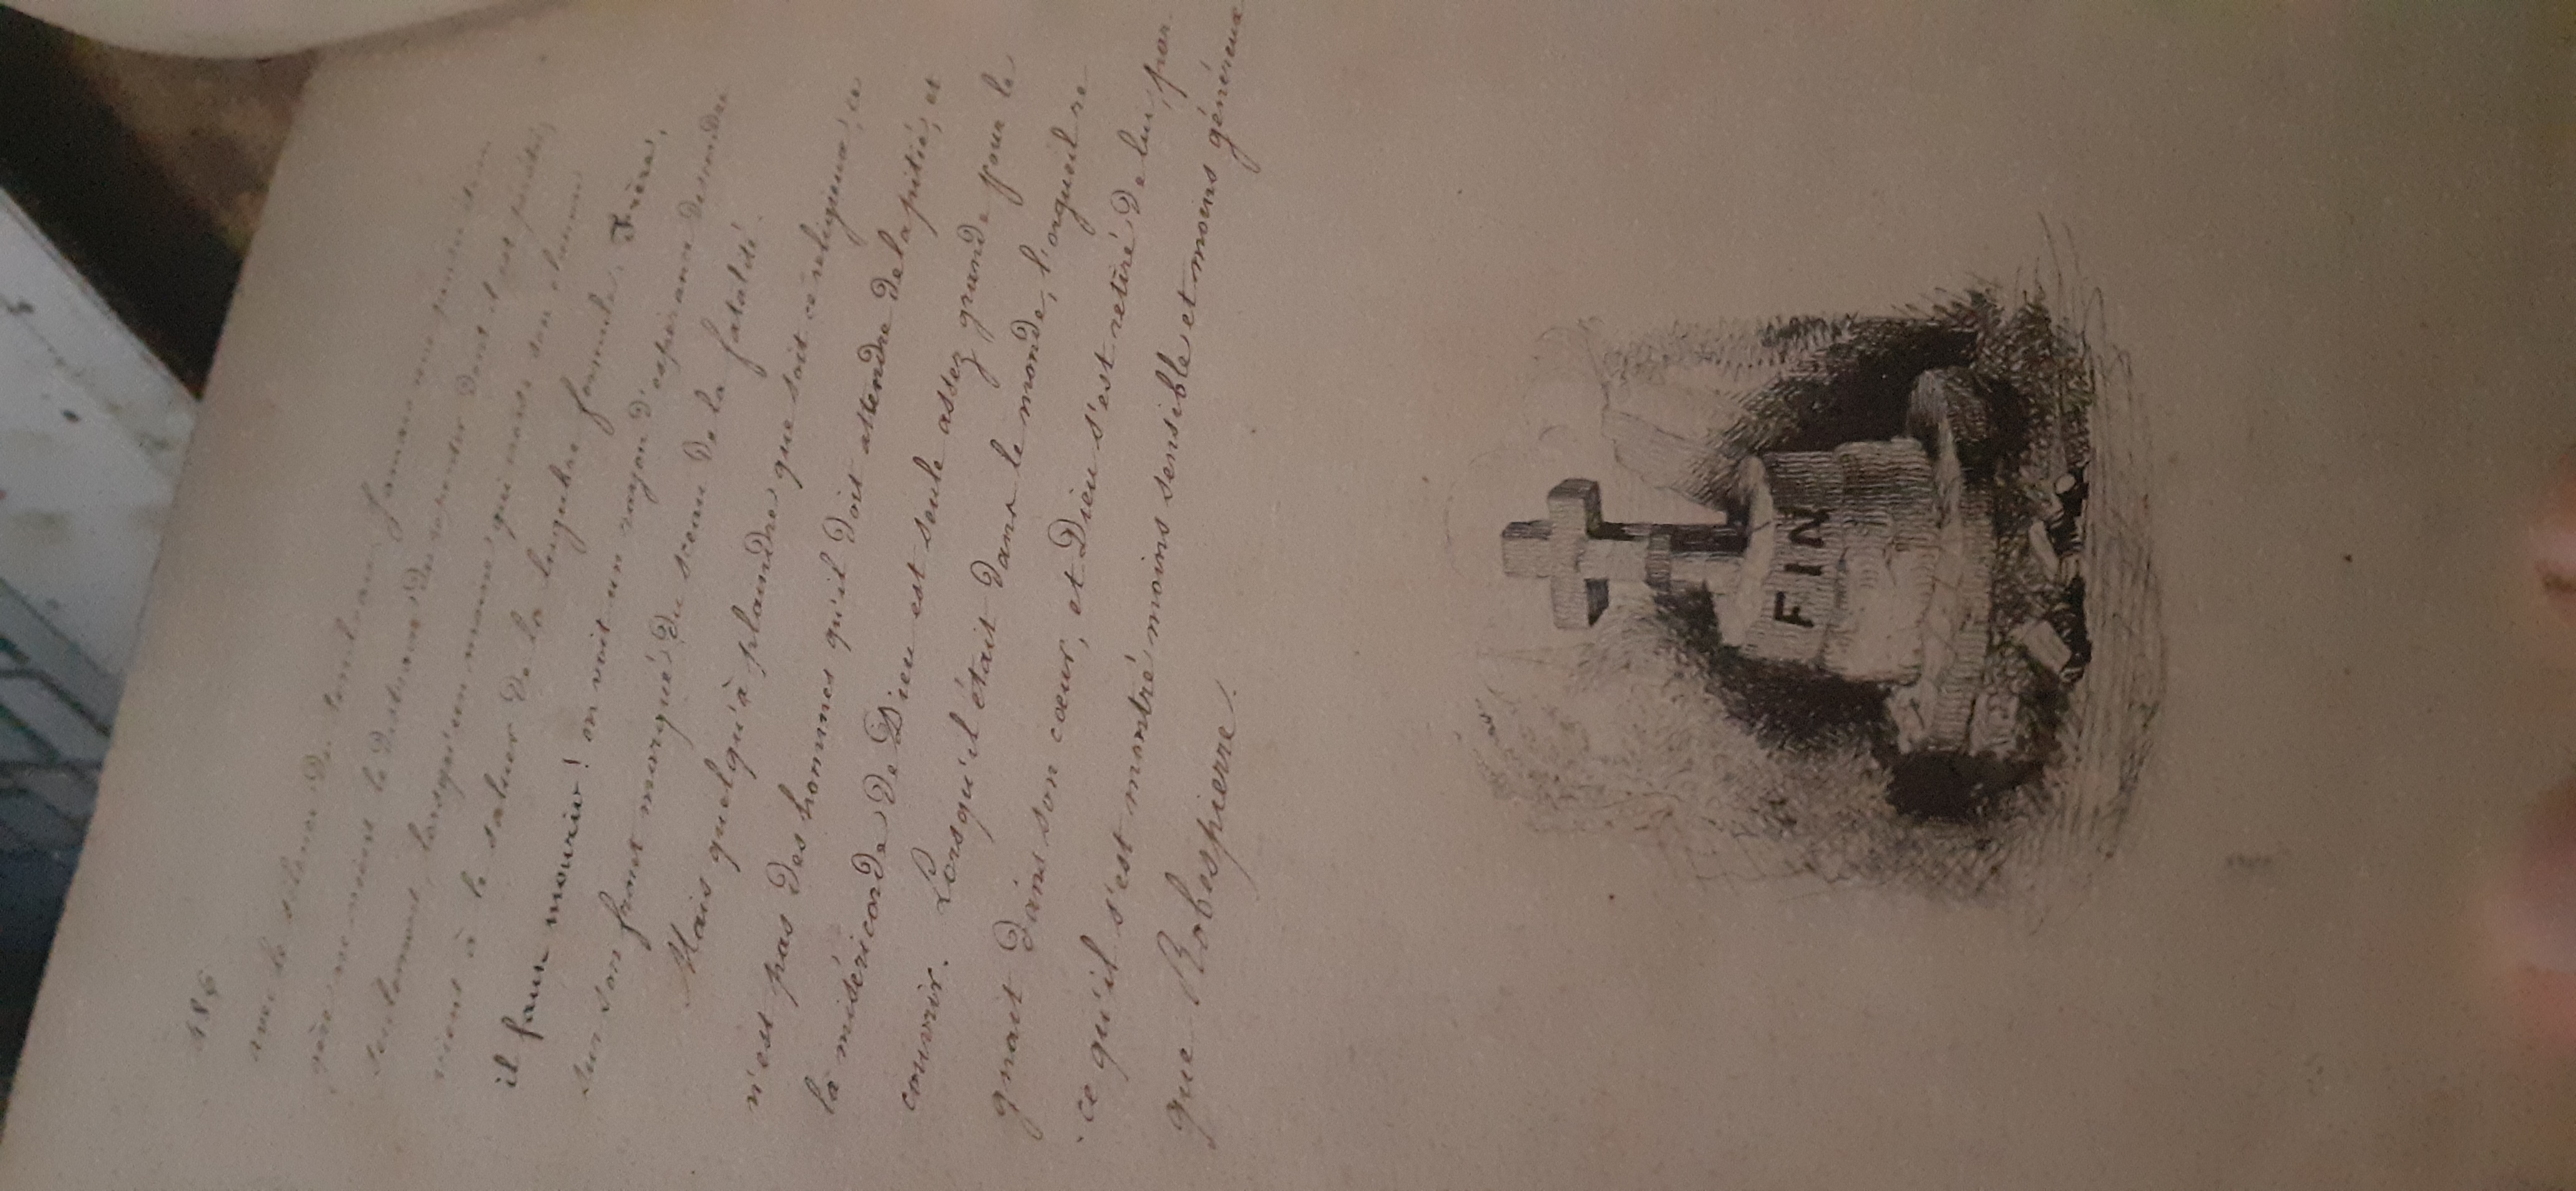 486
avec le silence de tout
gère
seulement, lorsqu'un moine qui
vient à le saluer de la lugubre formule, Frère,
il faut mourir! on voit un rayon d'espérance descendre
sur son front marqué du sceau de la fatalité.
Mais quelqu'à plaindre que soit ce religieux, ce
n'est pas des hommes qu'il doit attendre de la pitié, et
la miséricorde de Dieu est seule assez grande pour le
couvrir. Lorsqu'il était dans le monde, l'orgueil ré
gnait dans son coeur, et Dieu s'est retiré de lui, par
ce qu'il s'est montré moins sensible et moins généreux
que Robespierre.
FIN